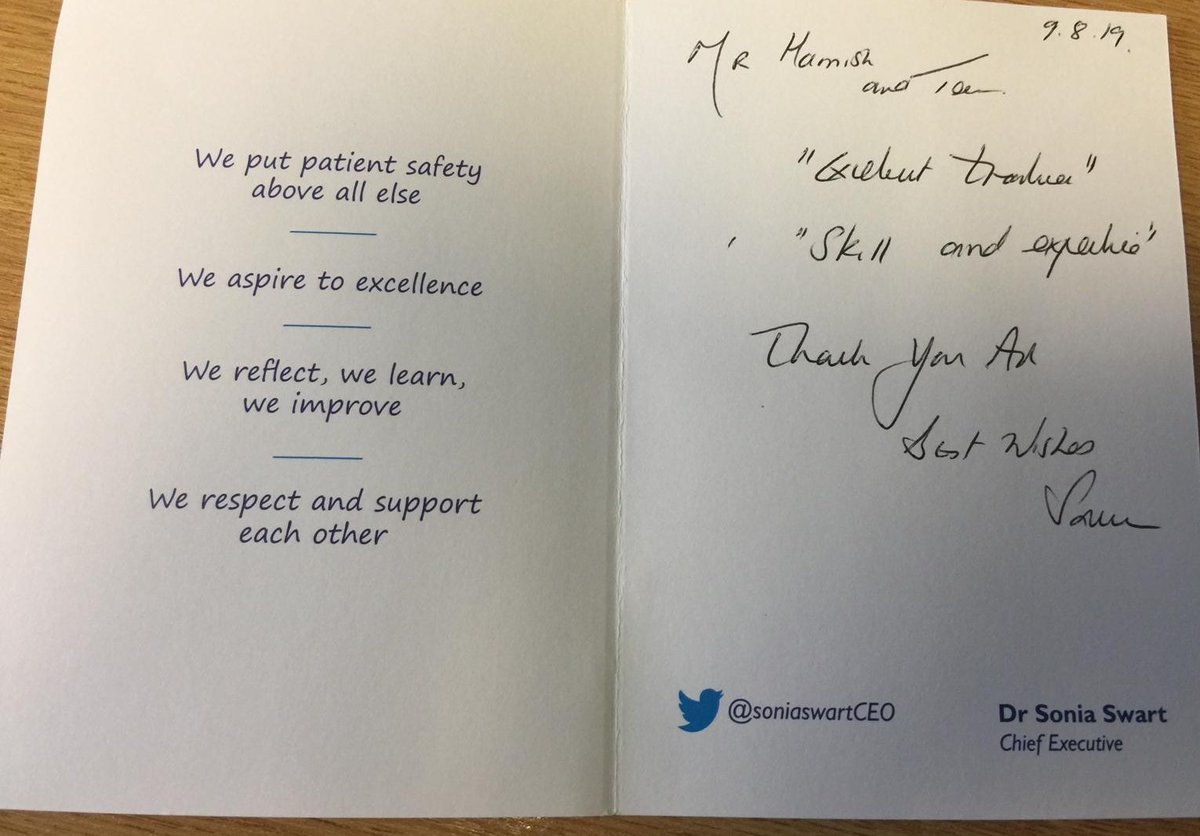 We put patient safety
above all else
We aspire to excellence
We reflect, we learn,
we improve
We respect and support
each other
9.8.19.
Mr Hamish
and Team
"Excellent
"Skill and expertise"
Thank You All
Best Wishes
Sonia
@soniaswartCEO
Dr Sonia Swart
Chief Executive